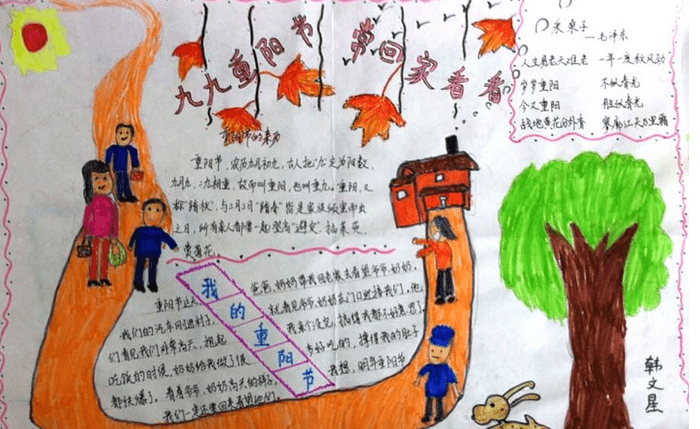 九九重阳节 常回家看看
采桑子
—毛泽东
人生易老天难老 一年一度秋风动
岁岁重阳 不似春光
今又重阳 胜似春光
战地黄花分外香 寥廓江天万里霜
重阳节的来历
重阳节，农历九月初九，古人把"九"定为阳数，
九月九，二九相重，故而叫重阳，也叫重九。重阳，又
称"踏秋"，与三月三日"踏春"皆是家族倾室而出
之日，所有亲人都要一起登高"避灾"，插茱萸、
赏菊花。
我的重阳节
重阳节这天
爸爸、妈妈带我回老家去看望爷爷、奶奶。
我们的汽车
就看见爷爷、奶奶在门口迎接我们。他
们看见我们非常高兴，
吃饭的时候，奶奶给我做了很
多好吃的，撑得我的肚子
都快爆了。看着爷爷、奶奶高兴的样子，
我想，明年重阳节
我们一定还要回来看望他们。
韩文星